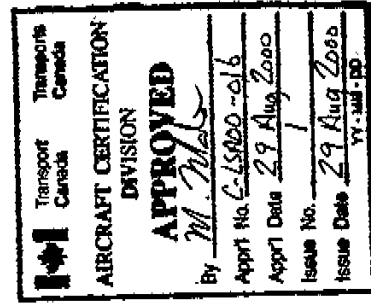 Transport Transports
Canada Canada
AIRCRAFT CERTIFICATION
DIVISION
APPROVED
By
Apprl No. C-LSA00-016
Apprl Date 29 Aug 2000
Issue No. 1
Issue Date 29 Aug 2000
YY - MM - DD